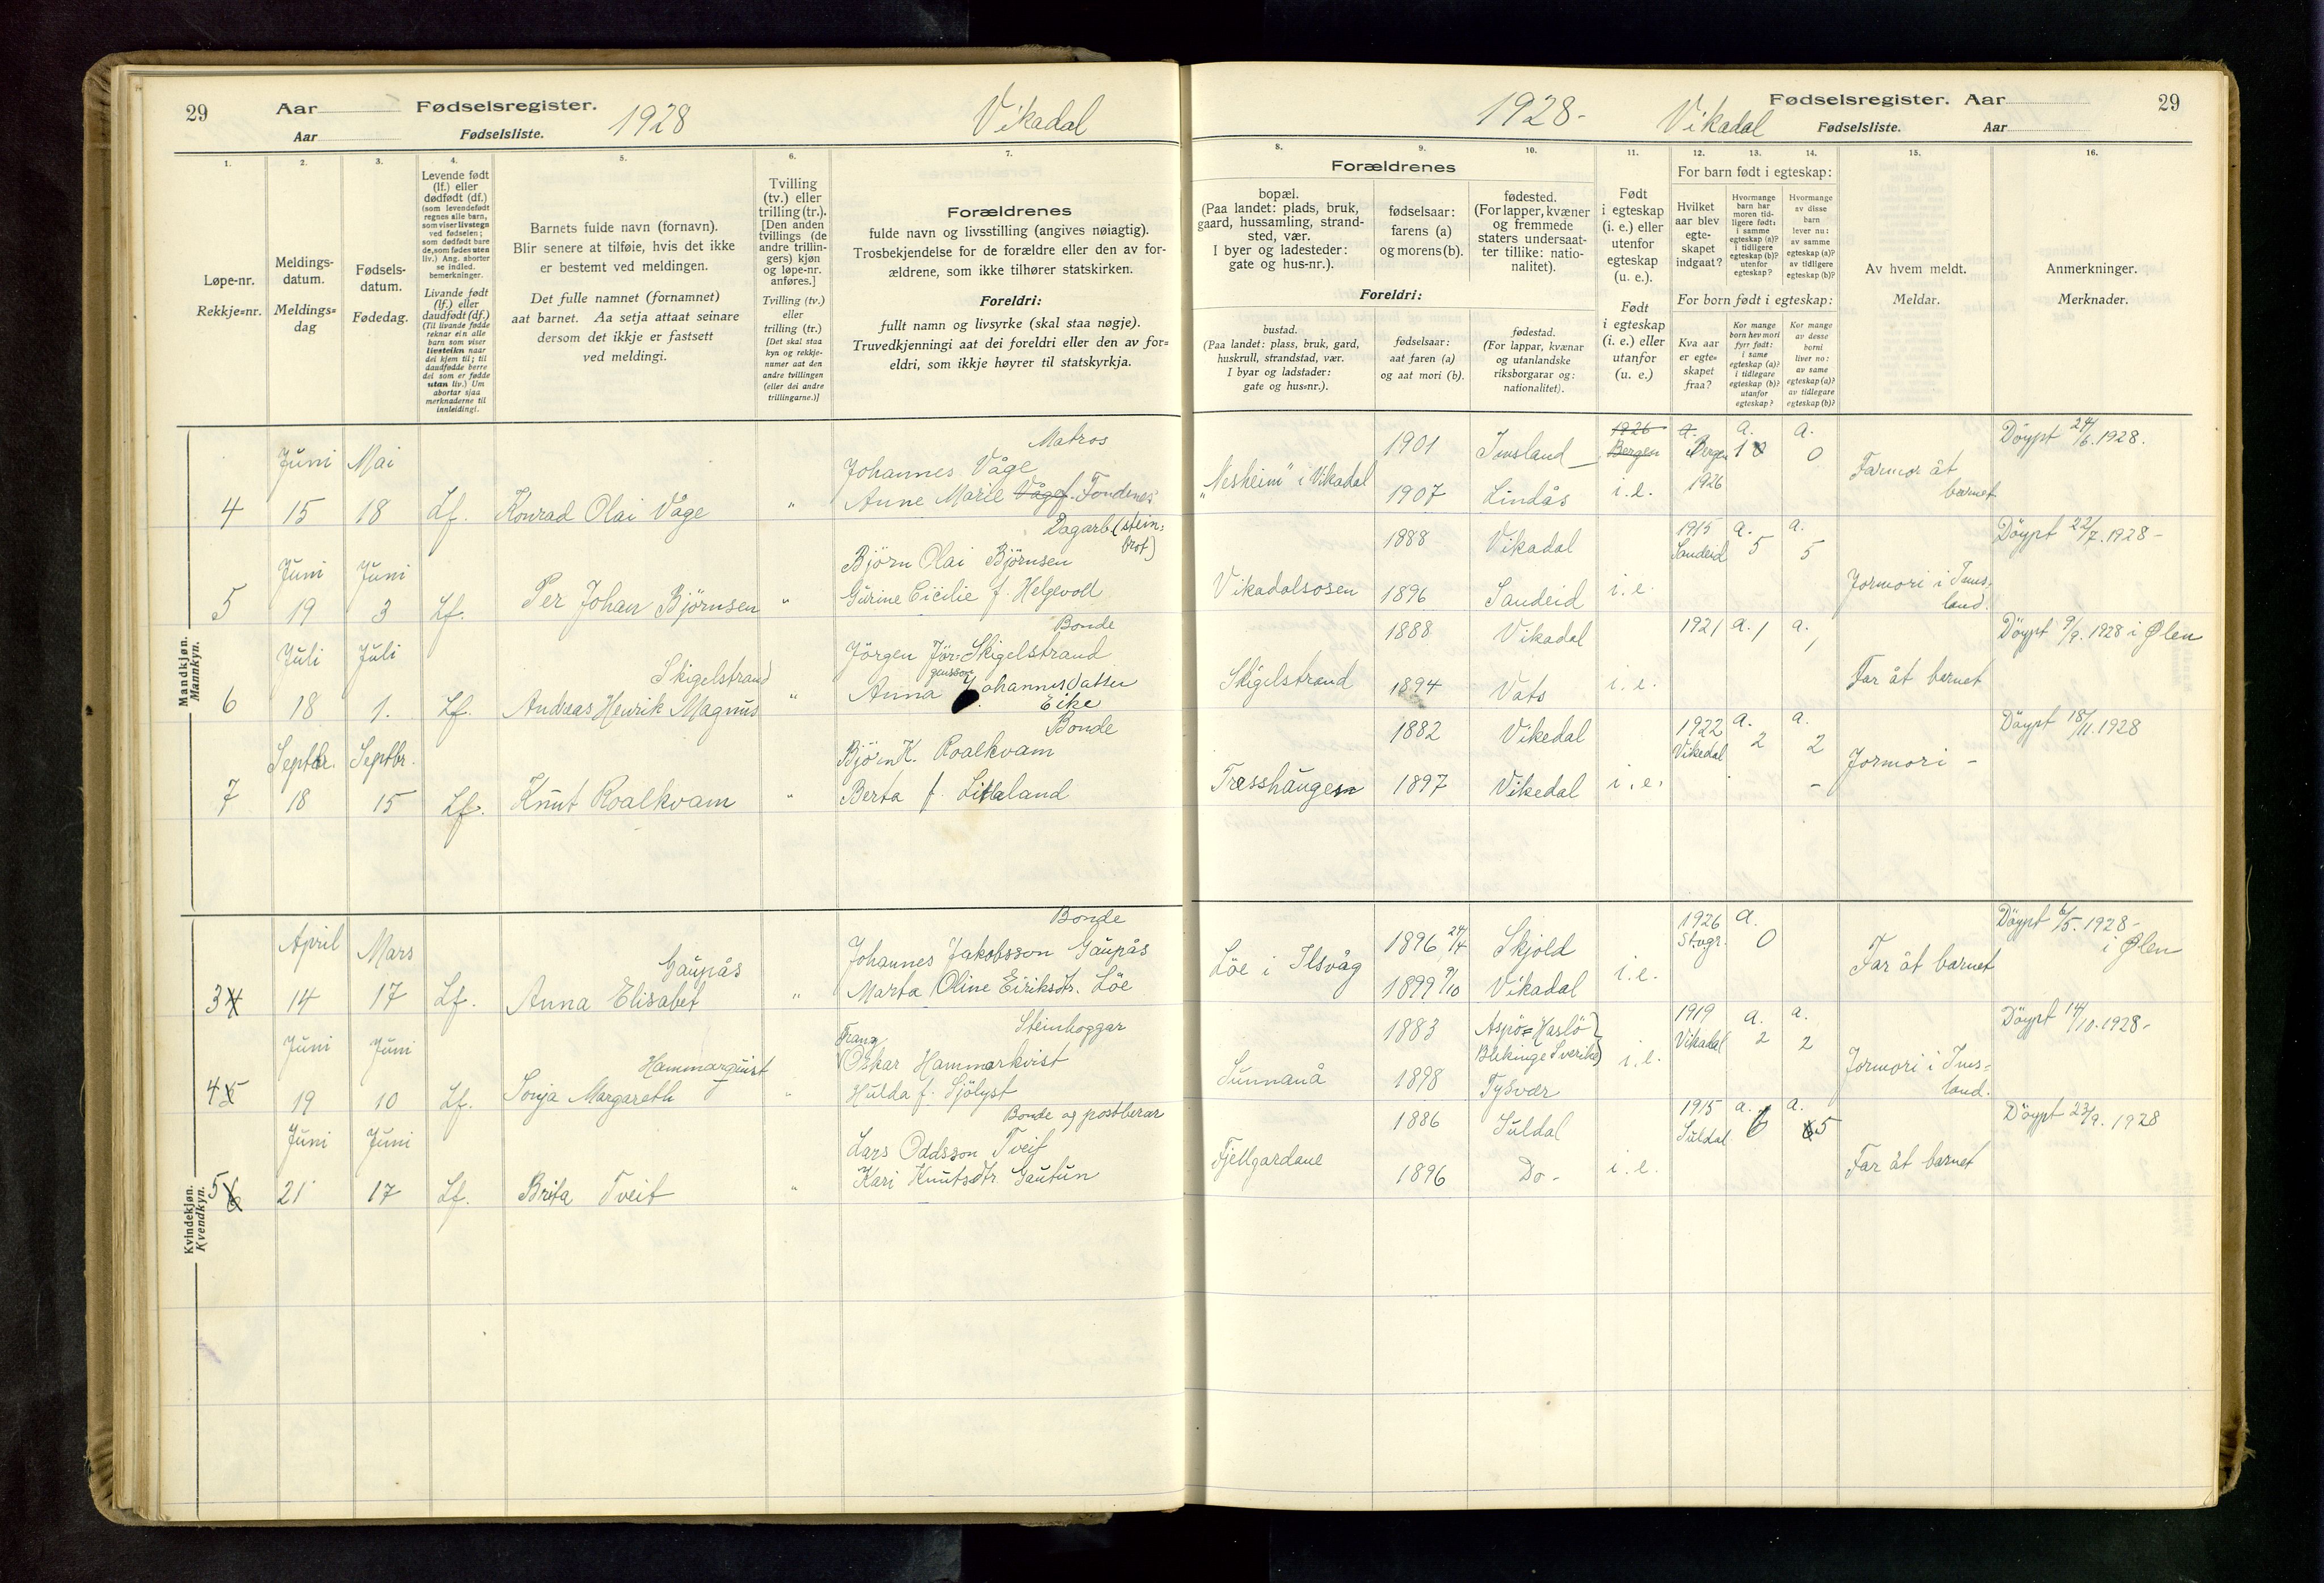 29
Aar
Fødselsregister.
Aar
Fødselsliste.
1928
Vikadal
1.
2.
3.
4.
5.
6.
7.
Løpe-nr.
Rekkje=nr.
Meldings-
datum.
Meldings=
dag
Fødsels-
datum.
Fødedag.
Levende født
(lf.) eller
dødfødt (df.)
(som levendefødt
regnes alle barn,
som viser livstegn
ved fødselen;
som dødfødt bare
de, som fødes uten
liv.) Ang. aborter
se indled.
bemerkninger.
Livande født
(lf.) eller
daudfødt (df.)
(Til livande fødde
reknar ein alle
barn som viser
livsteikn naar
dei kjem til; til
daudfødde berre
dei som er fødde
utan liv.) Um
abortar sjaa
merknaderne til
innleidingi.
Barnets fulde navn (fornavn).
Blir senere at tilføie, hvis det ikke
er bestemt ved meldingen.
Det fulle namnet (fornamnet)
aat barnet. Aa setja attaat seinare
dersom det ikkje er fastsett
ved meldingi.
Tvilling
(tv.) eller
trilling (tr.).
[Den anden
tvillings (de
andre trillin-
gers) kjøn
og løpe-nr.
anføres.]
Tvilling (tv.)
eller
trilling (tr.)
[Det skal staa
kyn og rekkje-
numer aat den
andre tvillingen
(eller dei andre
trillingarne.)]
Forældrenes
fulde navn og livsstilling (angives nøiagtig).
Trosbekjendelse for de forældre eller den av for-
ældrene, som ikke tilhører statskirken.
Foreldri:
fullt namn og livsyrke (skal staa nøgje).
Truvedkjenningi aat dei foreldri eller den av for=
eldri, som ikkje høyrer til statskyrkja.
Mandkjøn.
Mannkyn.
Matros
Juni Mai
Johannes Våge
4 15 18 Lf. Konrad Olai Våge " Anne Marie Våge f. Fondenes
Dagarb. (stein=
brot)
Juni Juni
Björn Olai Björnsen
5 19 3 Lf. Per Johan Björnsen " Gurine Cicilie f. Helgevold
Bonde
Juli Juli
Skigelstrand
Jörgen Jör= Skigelstrand
gensson
6 18 1. Lf. Andreas Henrik Magnus " Anna Johannesdatter
Eike
Bonde
Septbr. Septbr.
Björn K. Roalkvam
7 18 15 Lf. Knut Roalkvam " Berta f. Litlaland
Kvindekjøn.
Kvendkyn.
Bonde
April Mars
Gaupås
Johannes Jakobsson Gaupås
3 4 14 17 Lf. Anna Elisabet " Marta Oline Eiriksdtr. Löe
Juni Juni
Frans Steinhoggar
Hammarquist
Oskar Hammarkvist
4 5 19 10 Lf. Sonja Margareth " Hulda f. Sjölyst
Bonde og postberar
Juni Juni
Lars Oddsson Tveit
5 6 21 17 Lf. Brita Tveit " Kari Knutsdtr. Gautun
1928-
Vikadal
Fødselsregister. Aar
29
Fødselsliste.
Aar
8.
9.
10.
11.
12.
13.
14.
15.
16.
Forældrenes
bopæl.
(Paa landet: plads, bruk,
gaard, hussamling, strand-
sted, vær.
I byer og ladesteder:
gate og hus-nr.).
fødselsaar:
farens (a)
og morens (b).
fødested.
(For lapper, kvæner
og fremmede
staters undersaat-
ter tillike: natio-
nalitet).
Foreldri:
bustad.
(Paa landet: plass, bruk, gard,
huskrull, strandstad, vær.
I byar og ladstader:
gate og hus=nr.).
fødselsaar:
aat faren (a)
og aat mori (b).
fødestad.
(For lappar, kvænar
og utanlandske
riksborgarar og:
nationalitet).
Født
i egteskap
(i. e.) eller
utenfor
egteskap
(u. e.).
Født
i egteskap
(i. e.) eller
utanfor
(u. e.)
For barn født i egteskap:
Hvilket
aar blev
egte-
skapet
indgaat?
Hvormange
barn har
moren tid-
ligere født:
i samme
egteskap (a)?
i tidligere
egteskap (b)?
utenfor
egteskap?
Hvormange
av disse
barn
lever nu:
av samme
egteskap (a)?
av tidligere
egteskap (b)?
For born født i egteskap:
Kva aar
er egte-
skapet
fraa?
Kor mange
born hev mori
fyrr født:
i same
egteskap (a)?
i tidlegare
egteskap (b)?
utanfor
egteskap?
Kor mange
av desse
borni
liver no:
av same
egteskap (a)?
av tidlegare
egteskap (b)?
Av hvem meldt.
Meldar.
Anmerkninger.
Merknader.
1901 Imsland 1926 a. a. a. Döypt 24/6. 1928.
Bergen Bergen 1 0 0
"Nesheim" i Vikadal Farmor åt
1907 Lindås i.e. 1926 barnet
1888 Vikadal 1915 a. a. Döypt 22/7. 1928-
Sandeid 5 5
Vikadalsosen 1896 Sandeid i.e. Jormori i Ims=
land.
1888 Vikadal 1921 a. 1 a. 1 Döypt 9/9. 1928 i Ølen
Skigelstrand 1894 Vats i.e. Far åt barnet
1882 Vikedal 1922 a. a. Döypt 18/11. 1928
Vikedal 2 2
Træsshaugen 1897 Vikedal i.e. - Jormori -
1896 24/4 Skjold 1926 a. Döypt 6/5. 1928-
Stvgr. 0 i Ølen
Löe i Ilsvåg 1899 9/10 Vikadal i.e. Far åt barnet
1883 Aspö= Haslö 1919 a. a. Döypt 14/10. 1928-
Blekinge Sverike Vikadal 2 2
Sunnanå 1898 Tysvær i.e. Jormori i Ims=
land.
1886 Suldal 1915 a. a. Döypt 23/9. 1928
Suldal 6 5
Fjellgardane 1896 Do - i.e. Far åt barnet